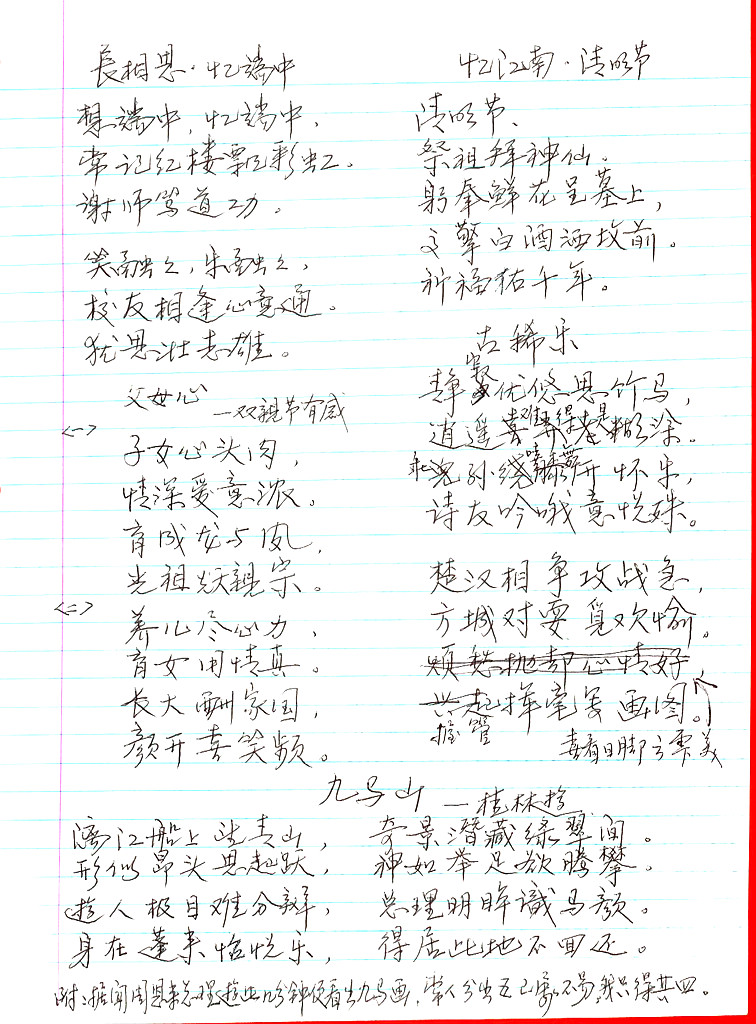 長相思·忆端中
想端中，忆端中，
常记红楼飘彩虹。
谢师笃道功。
笑融々，乐融々，
校友相逢心意通。
犹思壮志雄。
父母心
—双親节有感
<一>
子女心头肉，
情深爱意浓。
育成龙与凤，
光祖耀親宗。
<二>
养儿尽心力，
育女用情真。
长大酬家国，
颜开喜笑频。
忆江南·清明节
清明节，
祭祖拜神仙。
躬奉鲜花呈墓上，
擎白酒洒坟前。
祈福佑千年。
古稀乐
静寂优悠思竹马，
逍遥难得是糊涂。
孙绕膝开怀乐，
诗友吟哦意悦殊。
楚汉相争攻战急，
方城对耍觅欢愉。
烦愁抛却心情好，
兴起挥毫写画图。
握管
喜看日脚云霞美
九马山 —桂林游
漓江船上望青山， 奇景潜藏绿翠间。
形似昂头思起跃， 神如举足欲腾攀。
遊人极目难分辨， 总理明眸識马颜。
身在蓬来怡悦乐， 得居此地不回还。
附：据闻周恩来总理遊此分钟便看出九马画，常人分出五已属不易，我只得其四。